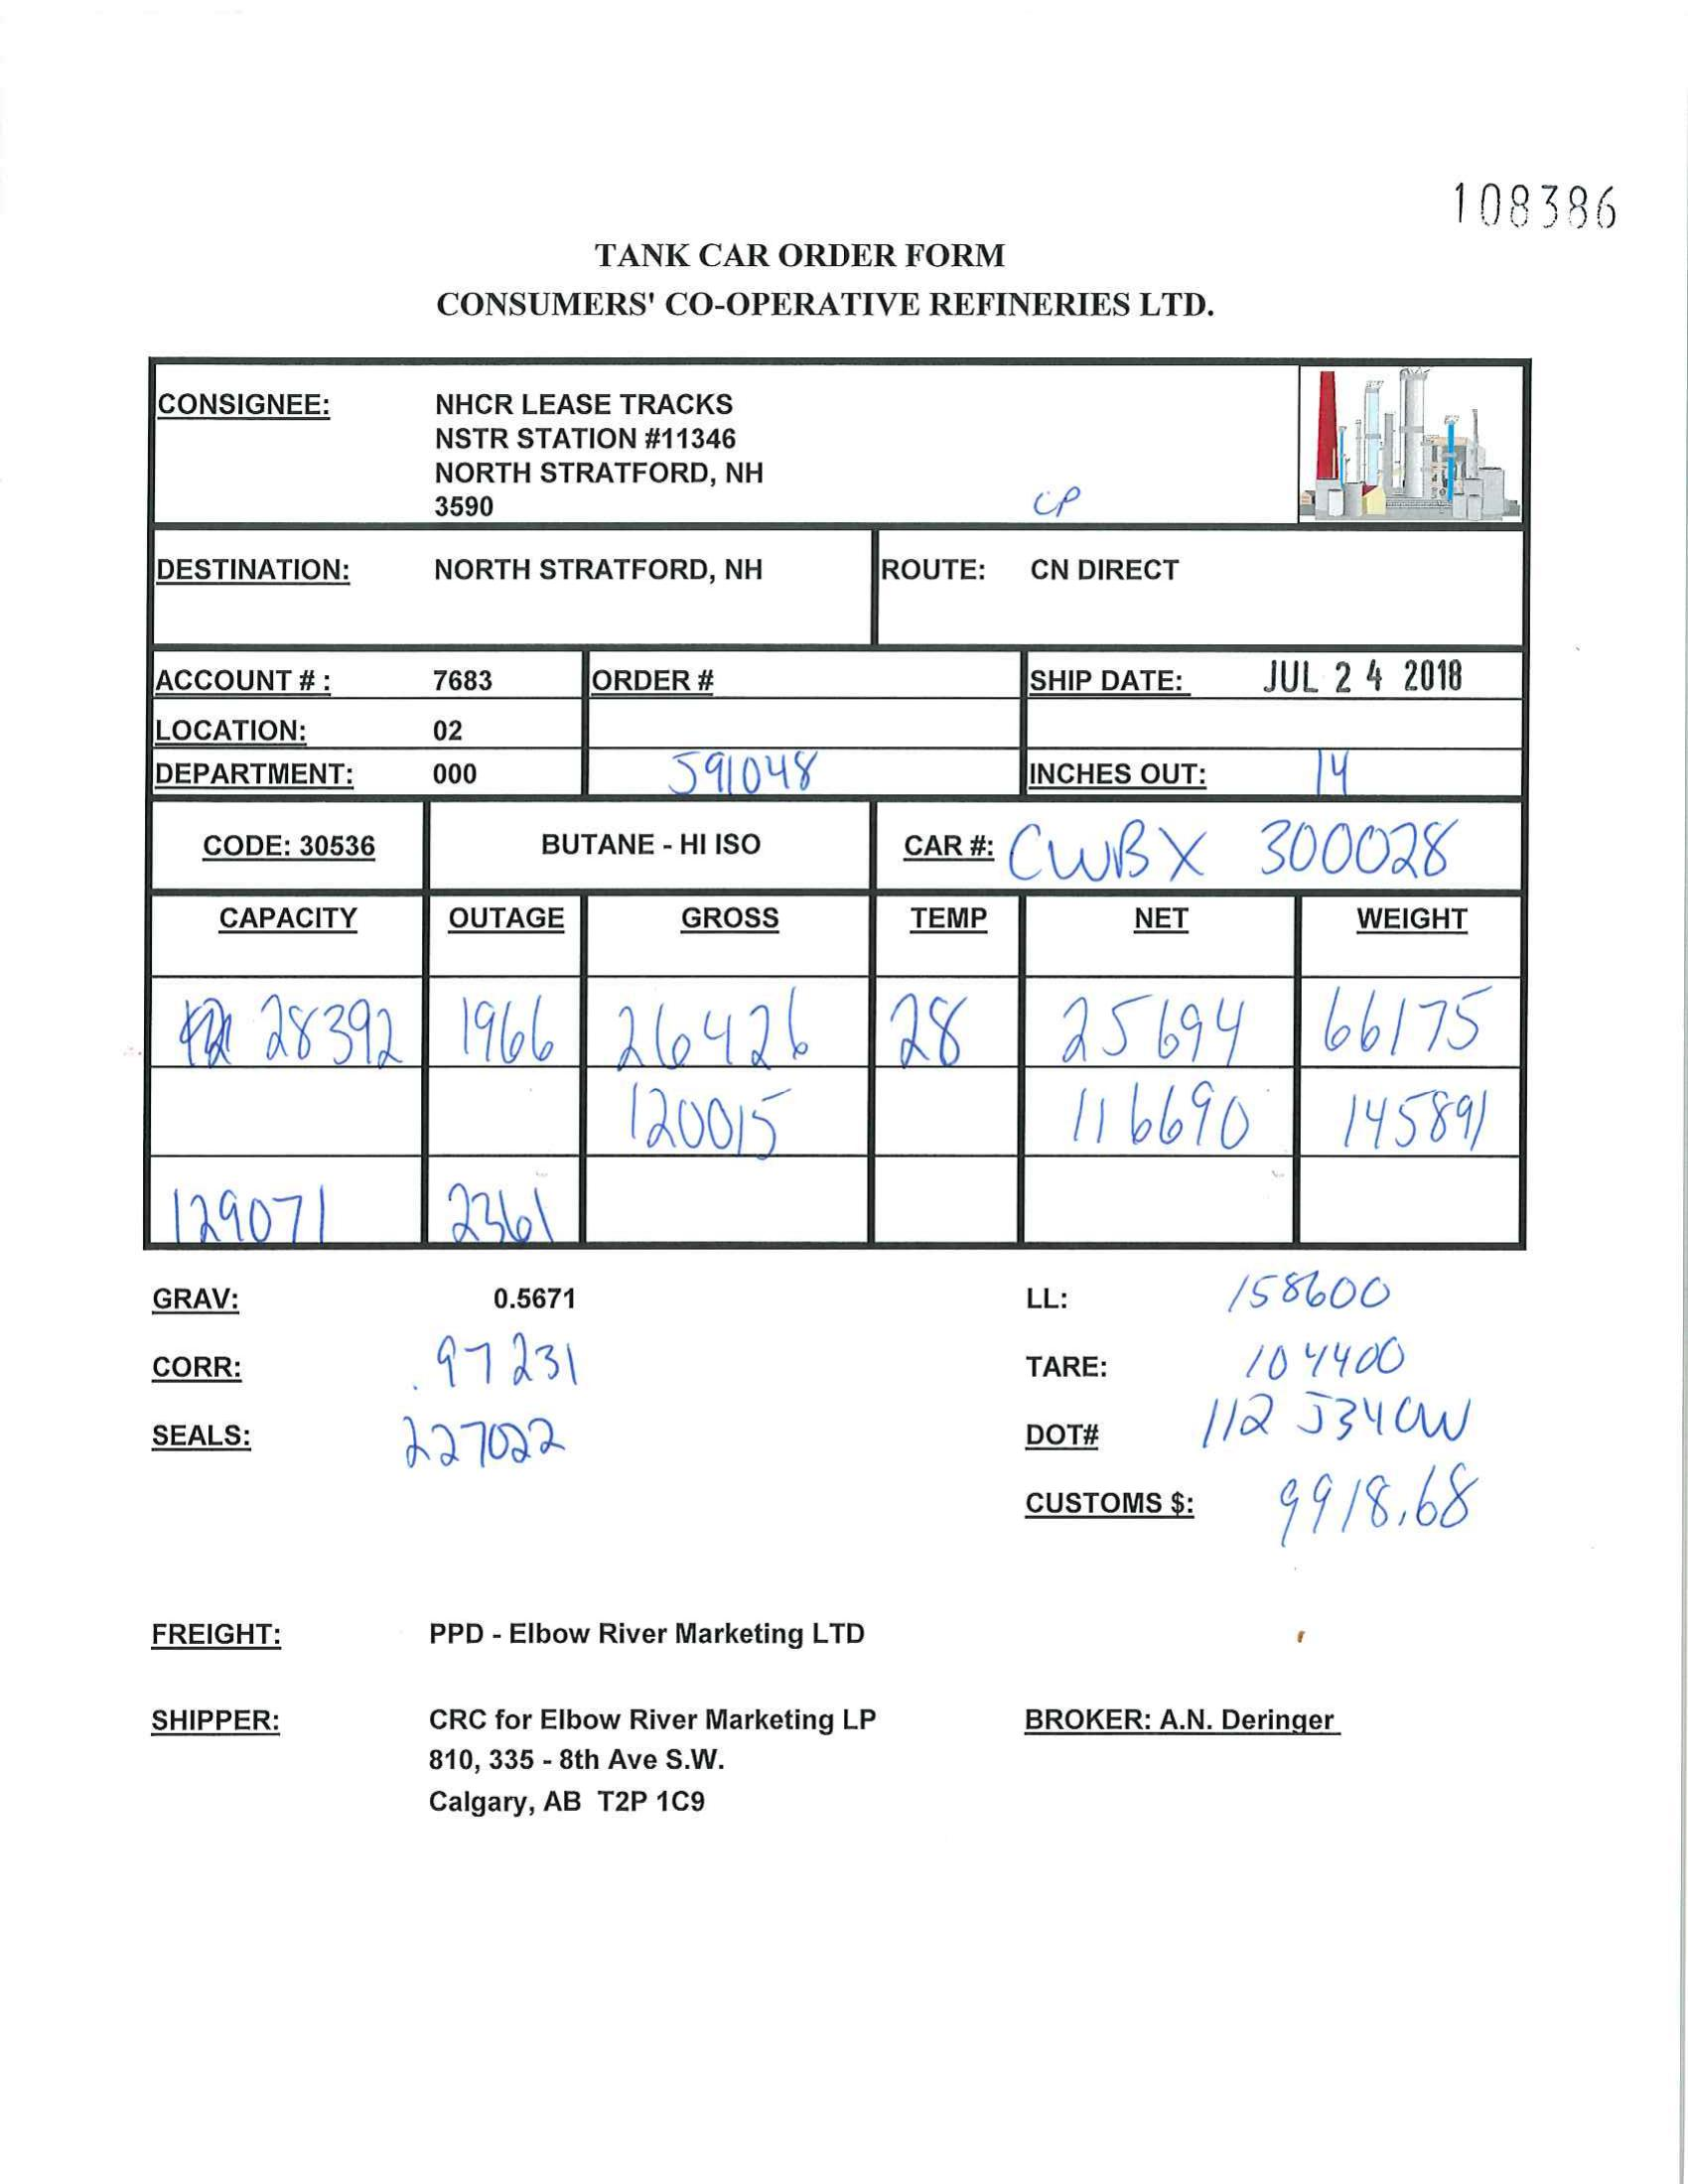 108386
TANK CAR ORDER FORM
CONSUMERS' CO-OPERATIVE REFINERIES LTD.
CONSIGNEE: NHCR LEASE TRACKS
NSTR STATION #11346
NORTH STRATFORD, NH
3590 CP
DESTINATION: NORTH STRATFORD, NH ROUTE: CN DIRECT
ACCOUNT # : 7683 ORDER # SHIP DATE: JUL 24 2018
LOCATION: 02
DEPARTMENT: 000 591048 INCHES OUT: 14
CODE: 30536 BUTANE - HI ISO CAR #: CWBX 300028
CAPACITY OUTAGE GROSS TEMP NET WEIGHT
28392 1966 26426 28 25694 66175
120015 116690 145891
129071 2361
GRAV: 0.5671 LL: 158600
CORR: .97231 TARE: 104400
SEALS: 227022 DOT# 112 J340W
CUSTOMS $: 9918.68
FREIGHT: PPD - Elbow River Marketing LTD
SHIPPER: CRC for Elbow River Marketing LP BROKER: A.N. Deringer
810, 335 - 8th Ave S.W.
Calgary, AB T2P 1C9